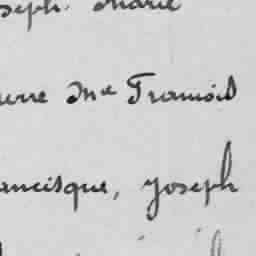 seph. Marie
erre Mie Tramoïl
ancisque, Joseph